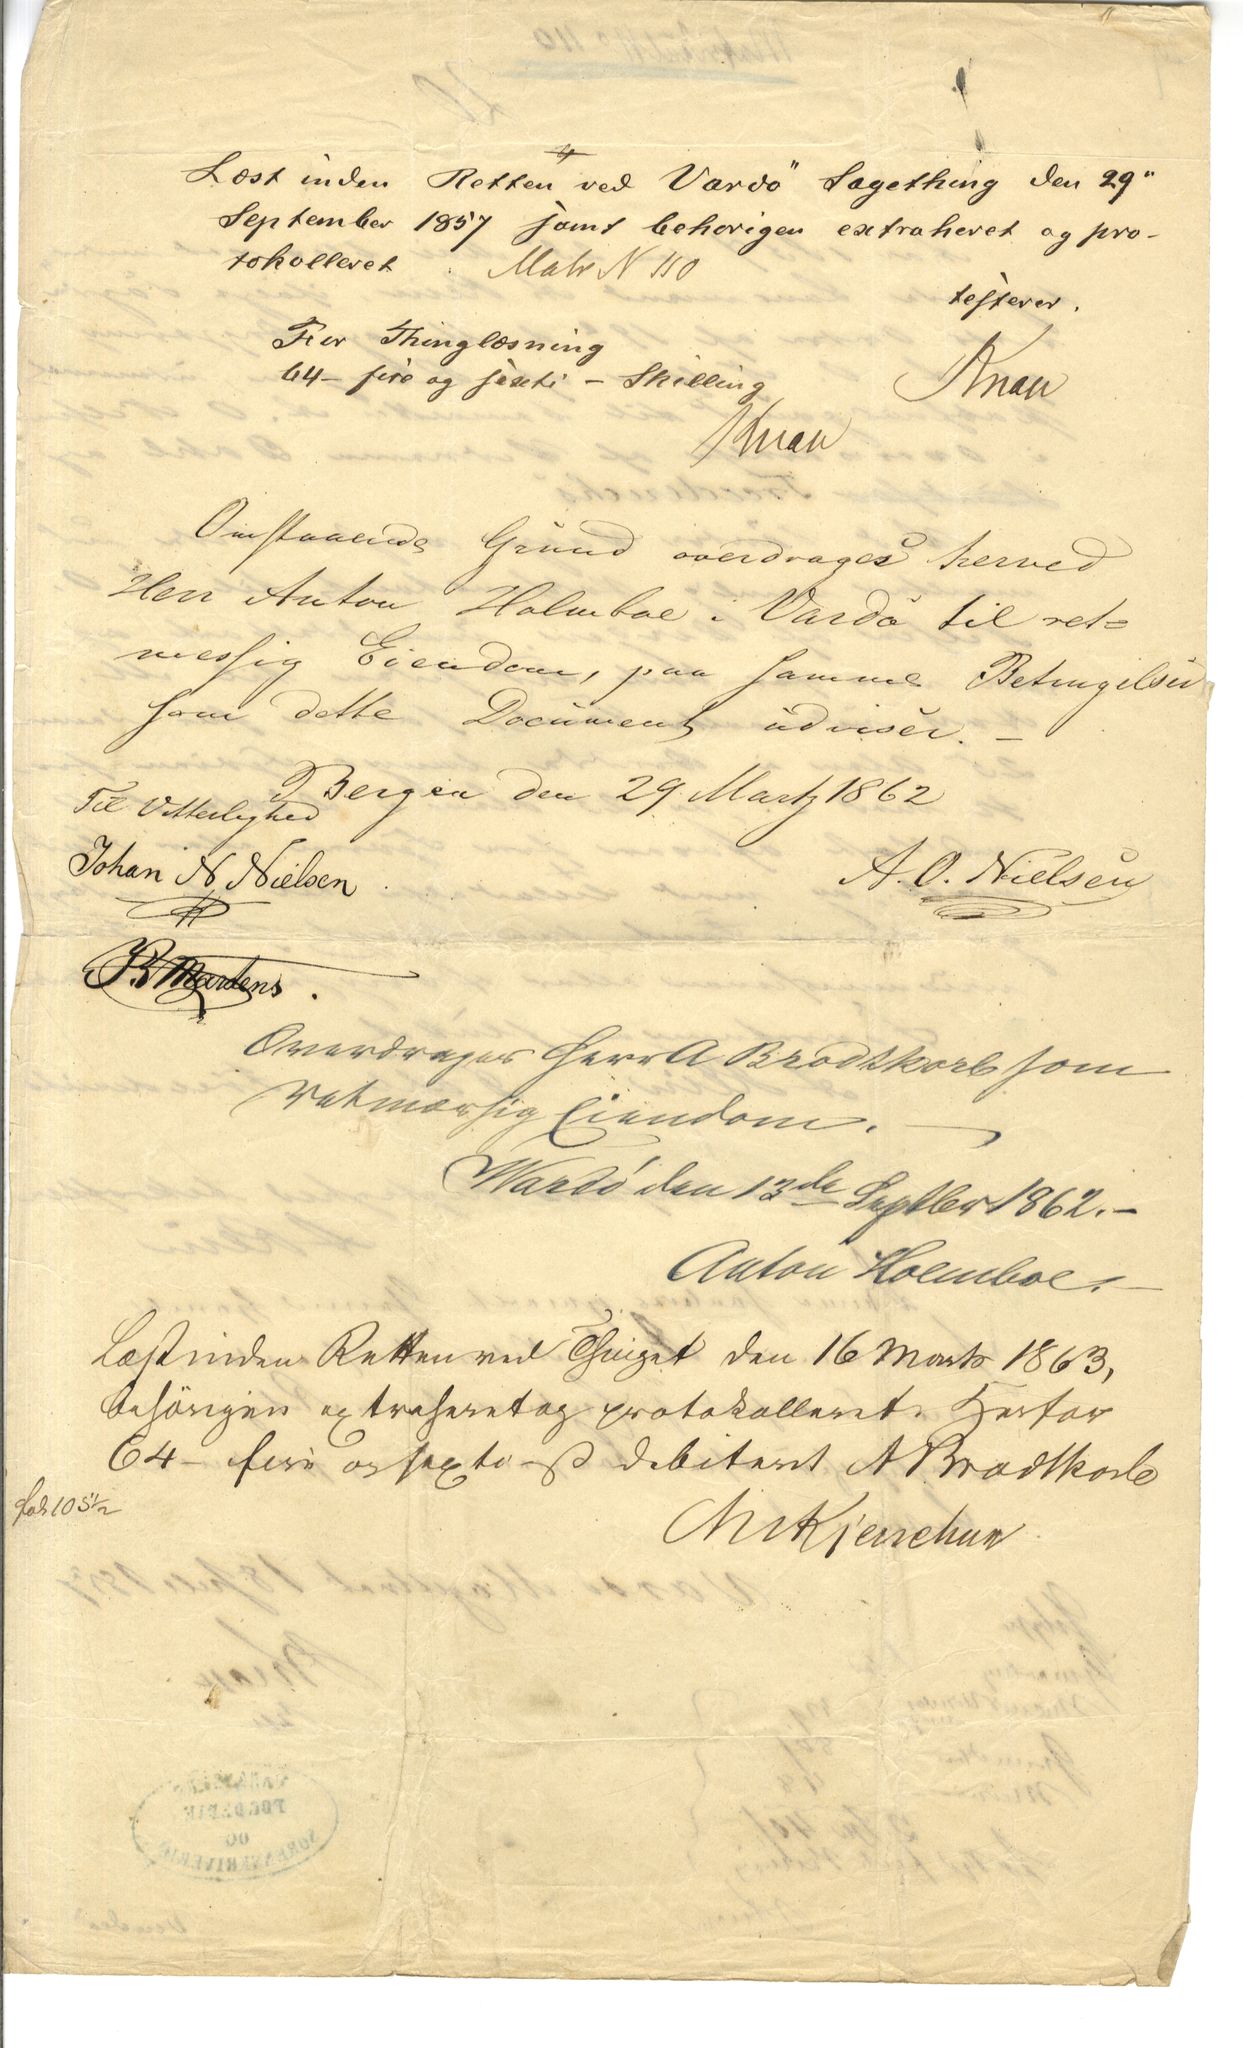 Læst inden Retten ved Vardö Sagething den 29"
September 1857 samt behørigen extraheret og pro-
tokolleret. Matr N 110
testerer.
For Thinglæsning
64 – fire og sexti – Skilling
Knau
Knau
Omstaaende Grund overdrages herved
Herr Anton Holmboe i Vardö til ret=
messig Eiendom, paa samme Betingelser
som dette Document udviser. –
Bergen den 29 Martz 1862
Til Vitterlighed
Johan N Nielsen
A. O. Nielsen
Martens
Overdrages Herr A Brodtkorb som
retmæssig Eiendom. –
Wardö den 13de Septber 1862. –
Anton Holmboe. –
Læst inden Retten ved Thinget den 16 Marts 1863,
behörigen extraheret og protokolleret. Herfor
64 – fire og sexti – ß debiteret A Brodtkorb
Kjerschow